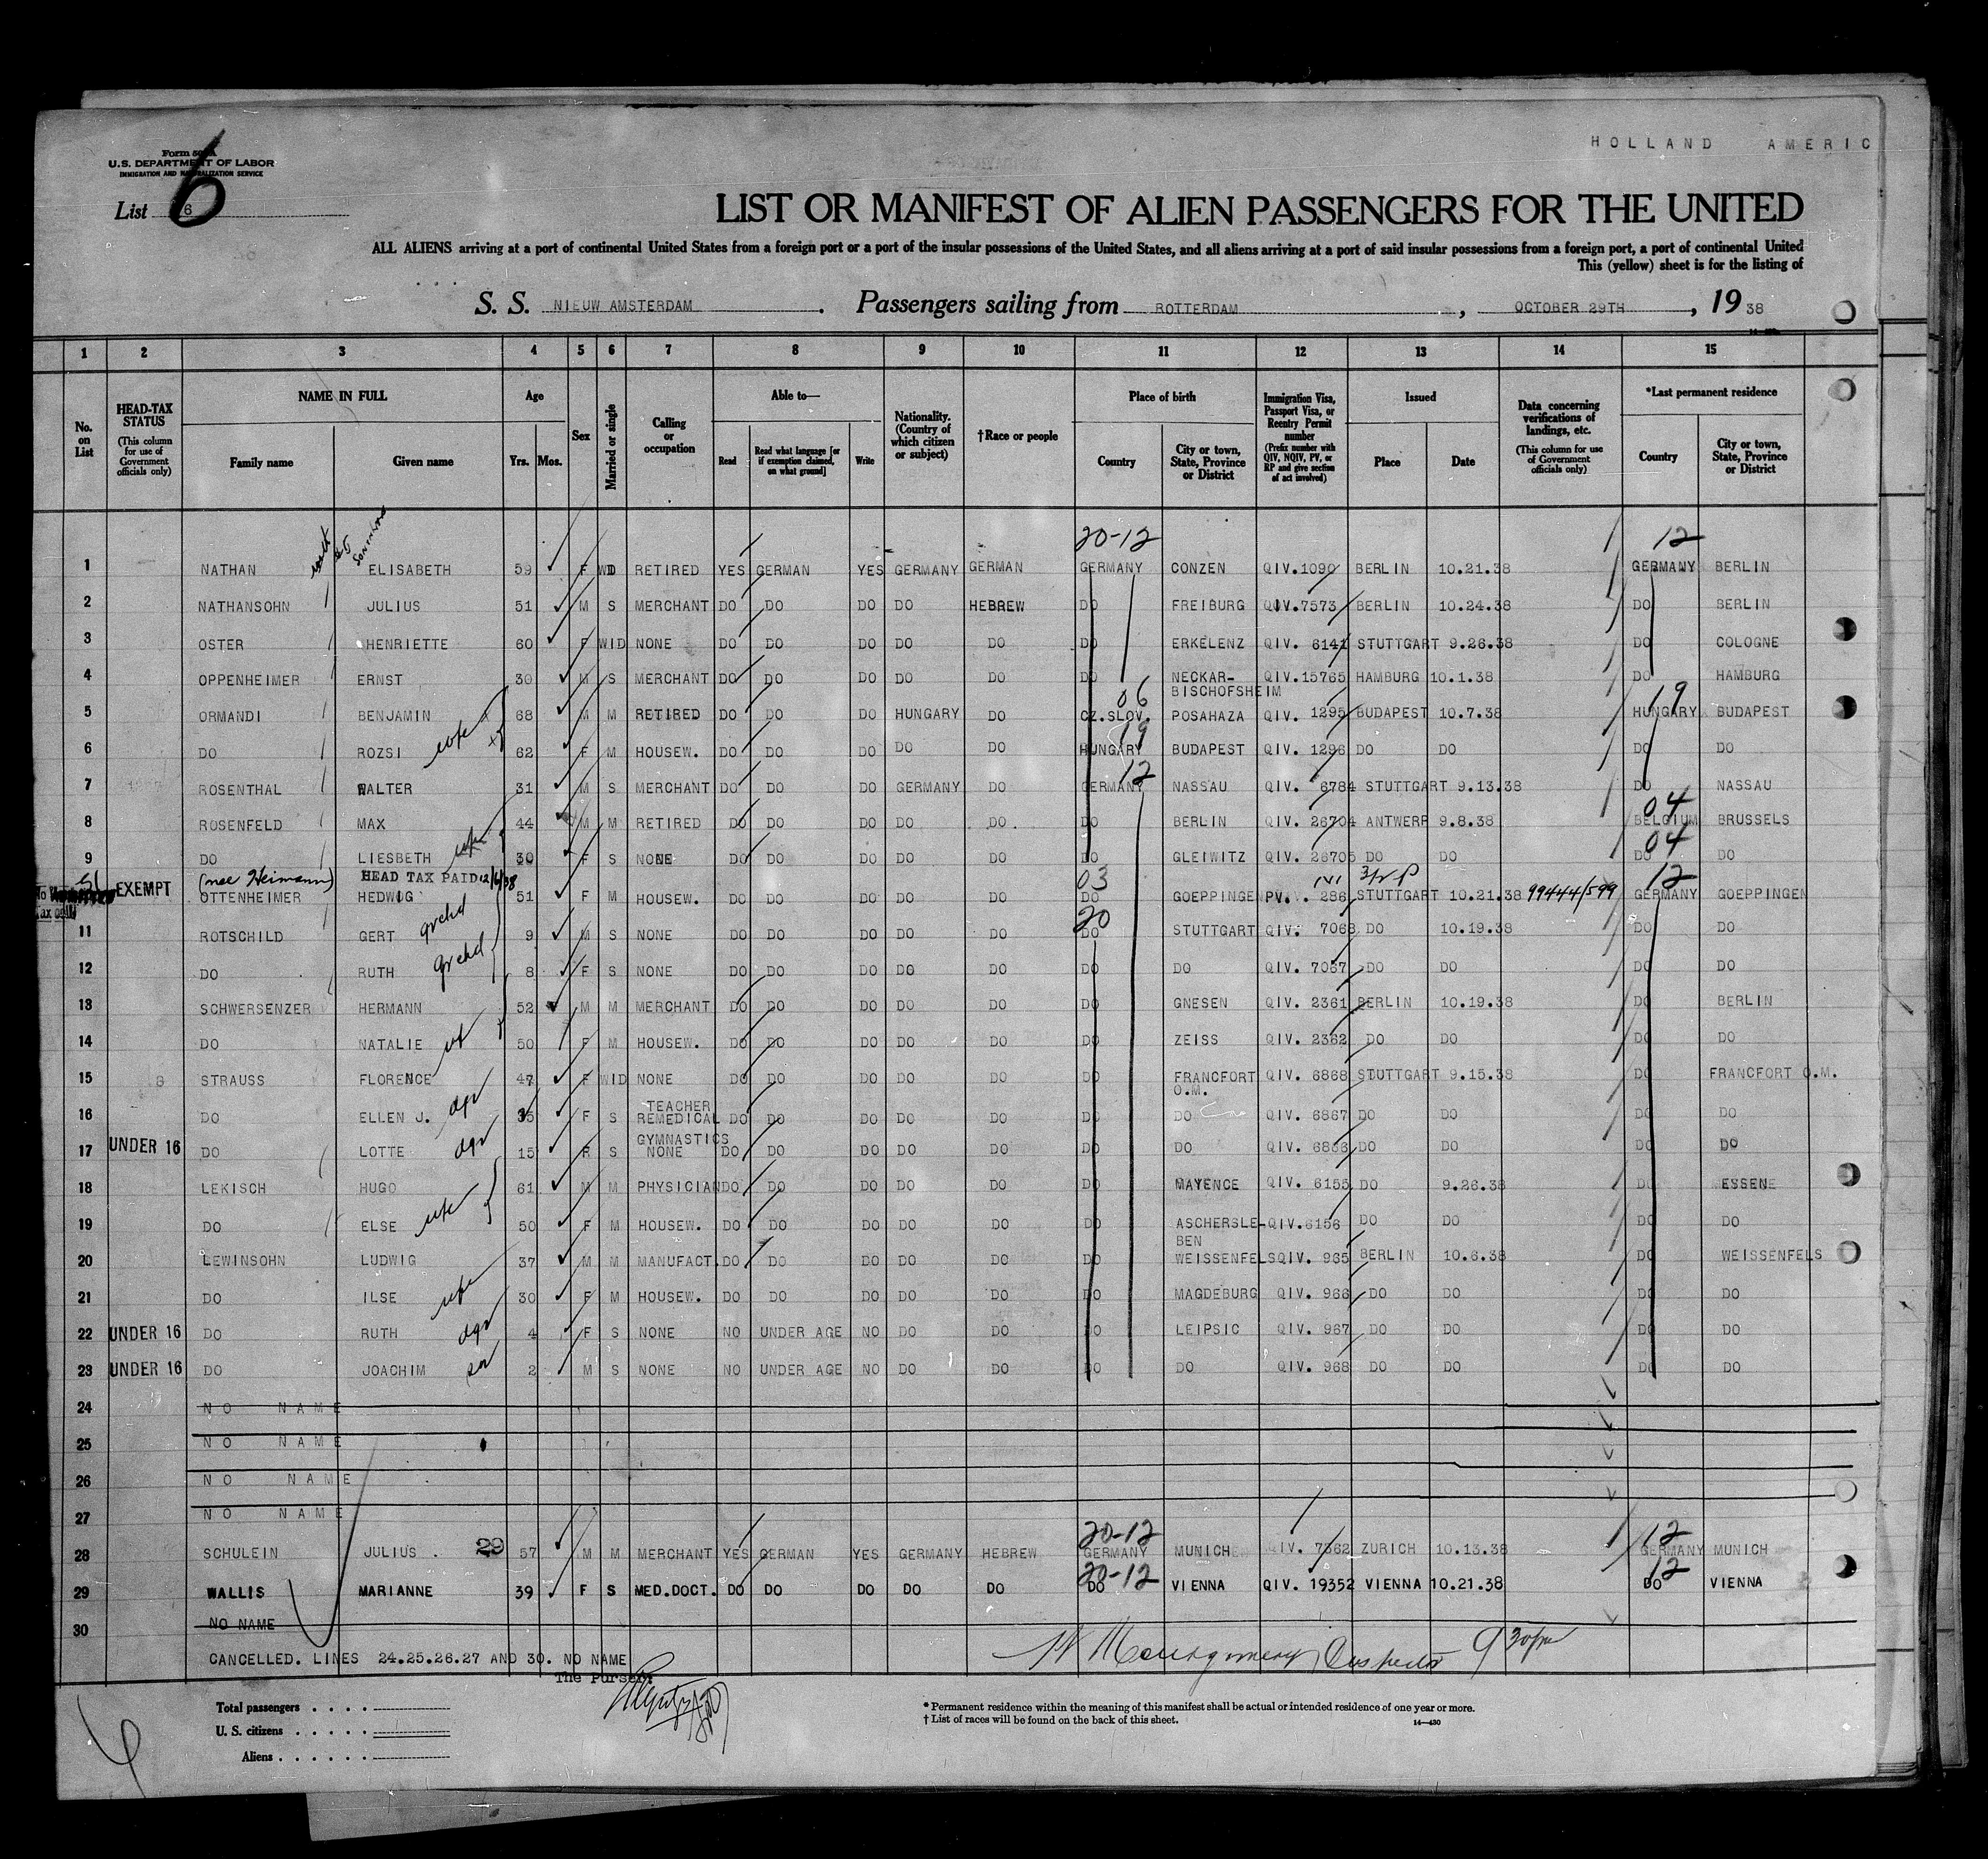 HOLLAND AMERIC
Form 500 A
U.S. DEPARTMENT OF LABOR
IMMIGRATION AND NATURALIZATION SERVICE
List 6
6
LIST OR MANIFEST OF ALIEN PASSENGERS FOR THE UNITED
ALL ALIENS arriving at a port of continental United States from a foreign port or a port of the insular possessions of the United States, and all aliens arriving at a port of said insular possessions from a foreign port, a port of continental United
This (yellow) sheet is for the listing of
S. S. NIEUW AMSTERDAM. Passengers sailing from ROTTERDAM, OCTOBER 29TH, 19 38
1 2 3 4 5 6 7 8 9 10 11 12 13 14 15
No. on List
HEAD-TAX STATUS (This column for use of Government officials only)
NAME IN FULL
Family name Given name
Age
Yrs. Mos.
Sex
Married or single
Calling or occupation
Able to—
Read
Read what language [or if exemption claimed, on what ground]
Write
Nationality. (Country of which citizen or subject)
†Race or people
Place of birth
Country
City or town, State, Province or District
Immigration Visa, Passport Visa, or Reentry Permit number (Prefix number with QIV, NQIV, PV, or RP and give section of act involved)
Issued
Place Date
Data concerning verifications of landings, etc. (This column for use of Government officials only)
*Last permanent residence
Country
City or town, State, Province or District
20-12 12
1 NATHAN ELISABETH 59 F WD RETIRED YES GERMAN YES GERMANY GERMAN GERMANY CONZEN QIV.1090 BERLIN 10.21.38 GERMANY BERLIN
2 NATHANSOHN JULIUS 51 M S MERCHANT DO DO DO DO HEBREW DO FREIBURG QIV.7573 BERLIN 10.24.38 DO BERLIN
3 OSTER HENRIETTE 60 F WID NONE DO DO DO DO DO DO ERKELENZ QIV. 6141 STUTTGART 9.26.38 DO COLOGNE
4 OPPENHEIMER ERNST 30 M S MERCHANT DO DO DO DO DO DO NECKAR-BISCHOFSHEIM QIV.15765 HAMBURG 10.1.38 DO HAMBURG
06 19
5 ORMANDI BENJAMIN 68 M M RETIRED DO DO DO HUNGARY DO CZ.SLOV. POSAHAZA QIV. 1295 BUDAPEST 10.7.38 HUNGARY BUDAPEST
19
6 DO ROZSI wife 62 F M HOUSEW. DO DO DO DO DO HUNGARY BUDAPEST QIV. 1296 DO DO DO DO
12
7 ROSENTHAL WALTER 31 M S MERCHANT DO DO DO GERMANY DO GERMANY NASSAU QIV. 6784 STUTTGART 9.13.38 DO NASSAU
04
8 ROSENFELD MAX 44 M M RETIRED DO DO DO DO DO DO BERLIN QIV. 26704 ANTWERP 9.8.38 BELGIUM BRUSSELS
04
9 DO LIESBETH wife 30 F S NONE DO DO DO DO DO DO GLEIWITZ QIV. 26705 DO DO DO DO
(nee Heimann) HEAD TAX PAID 12/6/38 03 12
EXEMPT OTTENHEIMER HEDWIG 51 F M HOUSEW. DO DO DO DO DO DO GOEPPINGEN PV. 286 STUTTGART 10.21.38 99444/599 GERMANY GOEPPINGEN
20
11 ROTSCHILD GERT grchd 9 M S NONE DO DO DO DO DO DO STUTTGART QIV. 7068 DO 10.19.38 DO DO
12 DO RUTH grchd 8 F S NONE DO DO DO DO DO DO DO QIV. 7067 DO DO DO DO
13 SCHWERSENZER HERMANN 52 M M MERCHANT DO DO DO DO DO DO GNESEN QIV. 2361 BERLIN 10.19.38 DO BERLIN
14 DO NATALIE wf 50 F M HOUSEW. DO DO DO DO DO DO ZEISS QIV. 2362 DO DO DO DO
15 STRAUSS FLORENCE 47 F WID NONE DO DO DO DO DO DO FRANCFORT O.M. QIV. 6868 STUTTGART 9.15.38 DO FRANCFORT O.M.
16 DO ELLEN J. dgr 35 F S TEACHER REMEDICAL GYMNASTICS DO DO DO DO DO DO DO QIV. 6867 DO DO DO DO
17 UNDER 16 DO LOTTE dgr 15 F S NONE DO DO DO DO DO DO DO QIV. 6866 DO DO DO DO
18 LEKISCH HUGO 61 M M PHYSICIAN DO DO DO DO DO DO MAYENCE QIV. 6155 DO 9.26.38 DO ESSENE
19 DO ELSE wife 50 F M HOUSEW. DO DO DO DO DO DO ASCHERSLE-BEN QIV.6156 DO DO DO DO
20 LEWINSOHN LUDWIG 37 M M MANUFACT. DO DO DO DO DO DO WEISSENFELS QIV. 965 BERLIN 10.6.38 DO WEISSENFELS
21 DO ILSE wife 30 F M HOUSEW. DO DO DO DO DO DO MAGDEBURG QIV. 966 DO DO DO DO
22 UNDER 16 DO RUTH dgr 4 F S NONE NO UNDER AGE NO DO DO DO LEIPSIC QIV. 967 DO DO DO DO
23 UNDER 16 DO JOACHIM sn 2 M S NONE NO UNDER AGE NO DO DO DO DO QIV. 968 DO DO DO DO
24 NO NAME
25 NO NAME
26 NO NAME
27 NO NAME
20-12 12
28 SCHULEIN JULIUS. 29 57 M M MERCHANT YES GERMAN YES GERMANY HEBREW GERMANY MUNICH QIV. 7362 ZURICH 10.13.38 GERMANY MUNICH
20-12 12
29 WALLIS MARIANNE 39 F S MED.DOCT. DO DO DO DO DO DO VIENNA QIV. 19352 VIENNA 10.21.38 DO VIENNA
30 NO NAME
CANCELLED. LINES 24.25.26.27 AND 30. NO NAME
The Purser:
Montgomery 9 30 pm
Total passengers
U. S. citizens
Aliens
* Permanent residence within the meaning of this manifest shall be actual or intended residence of one year or more.
† List of races will be found on the back of this sheet. 14—430